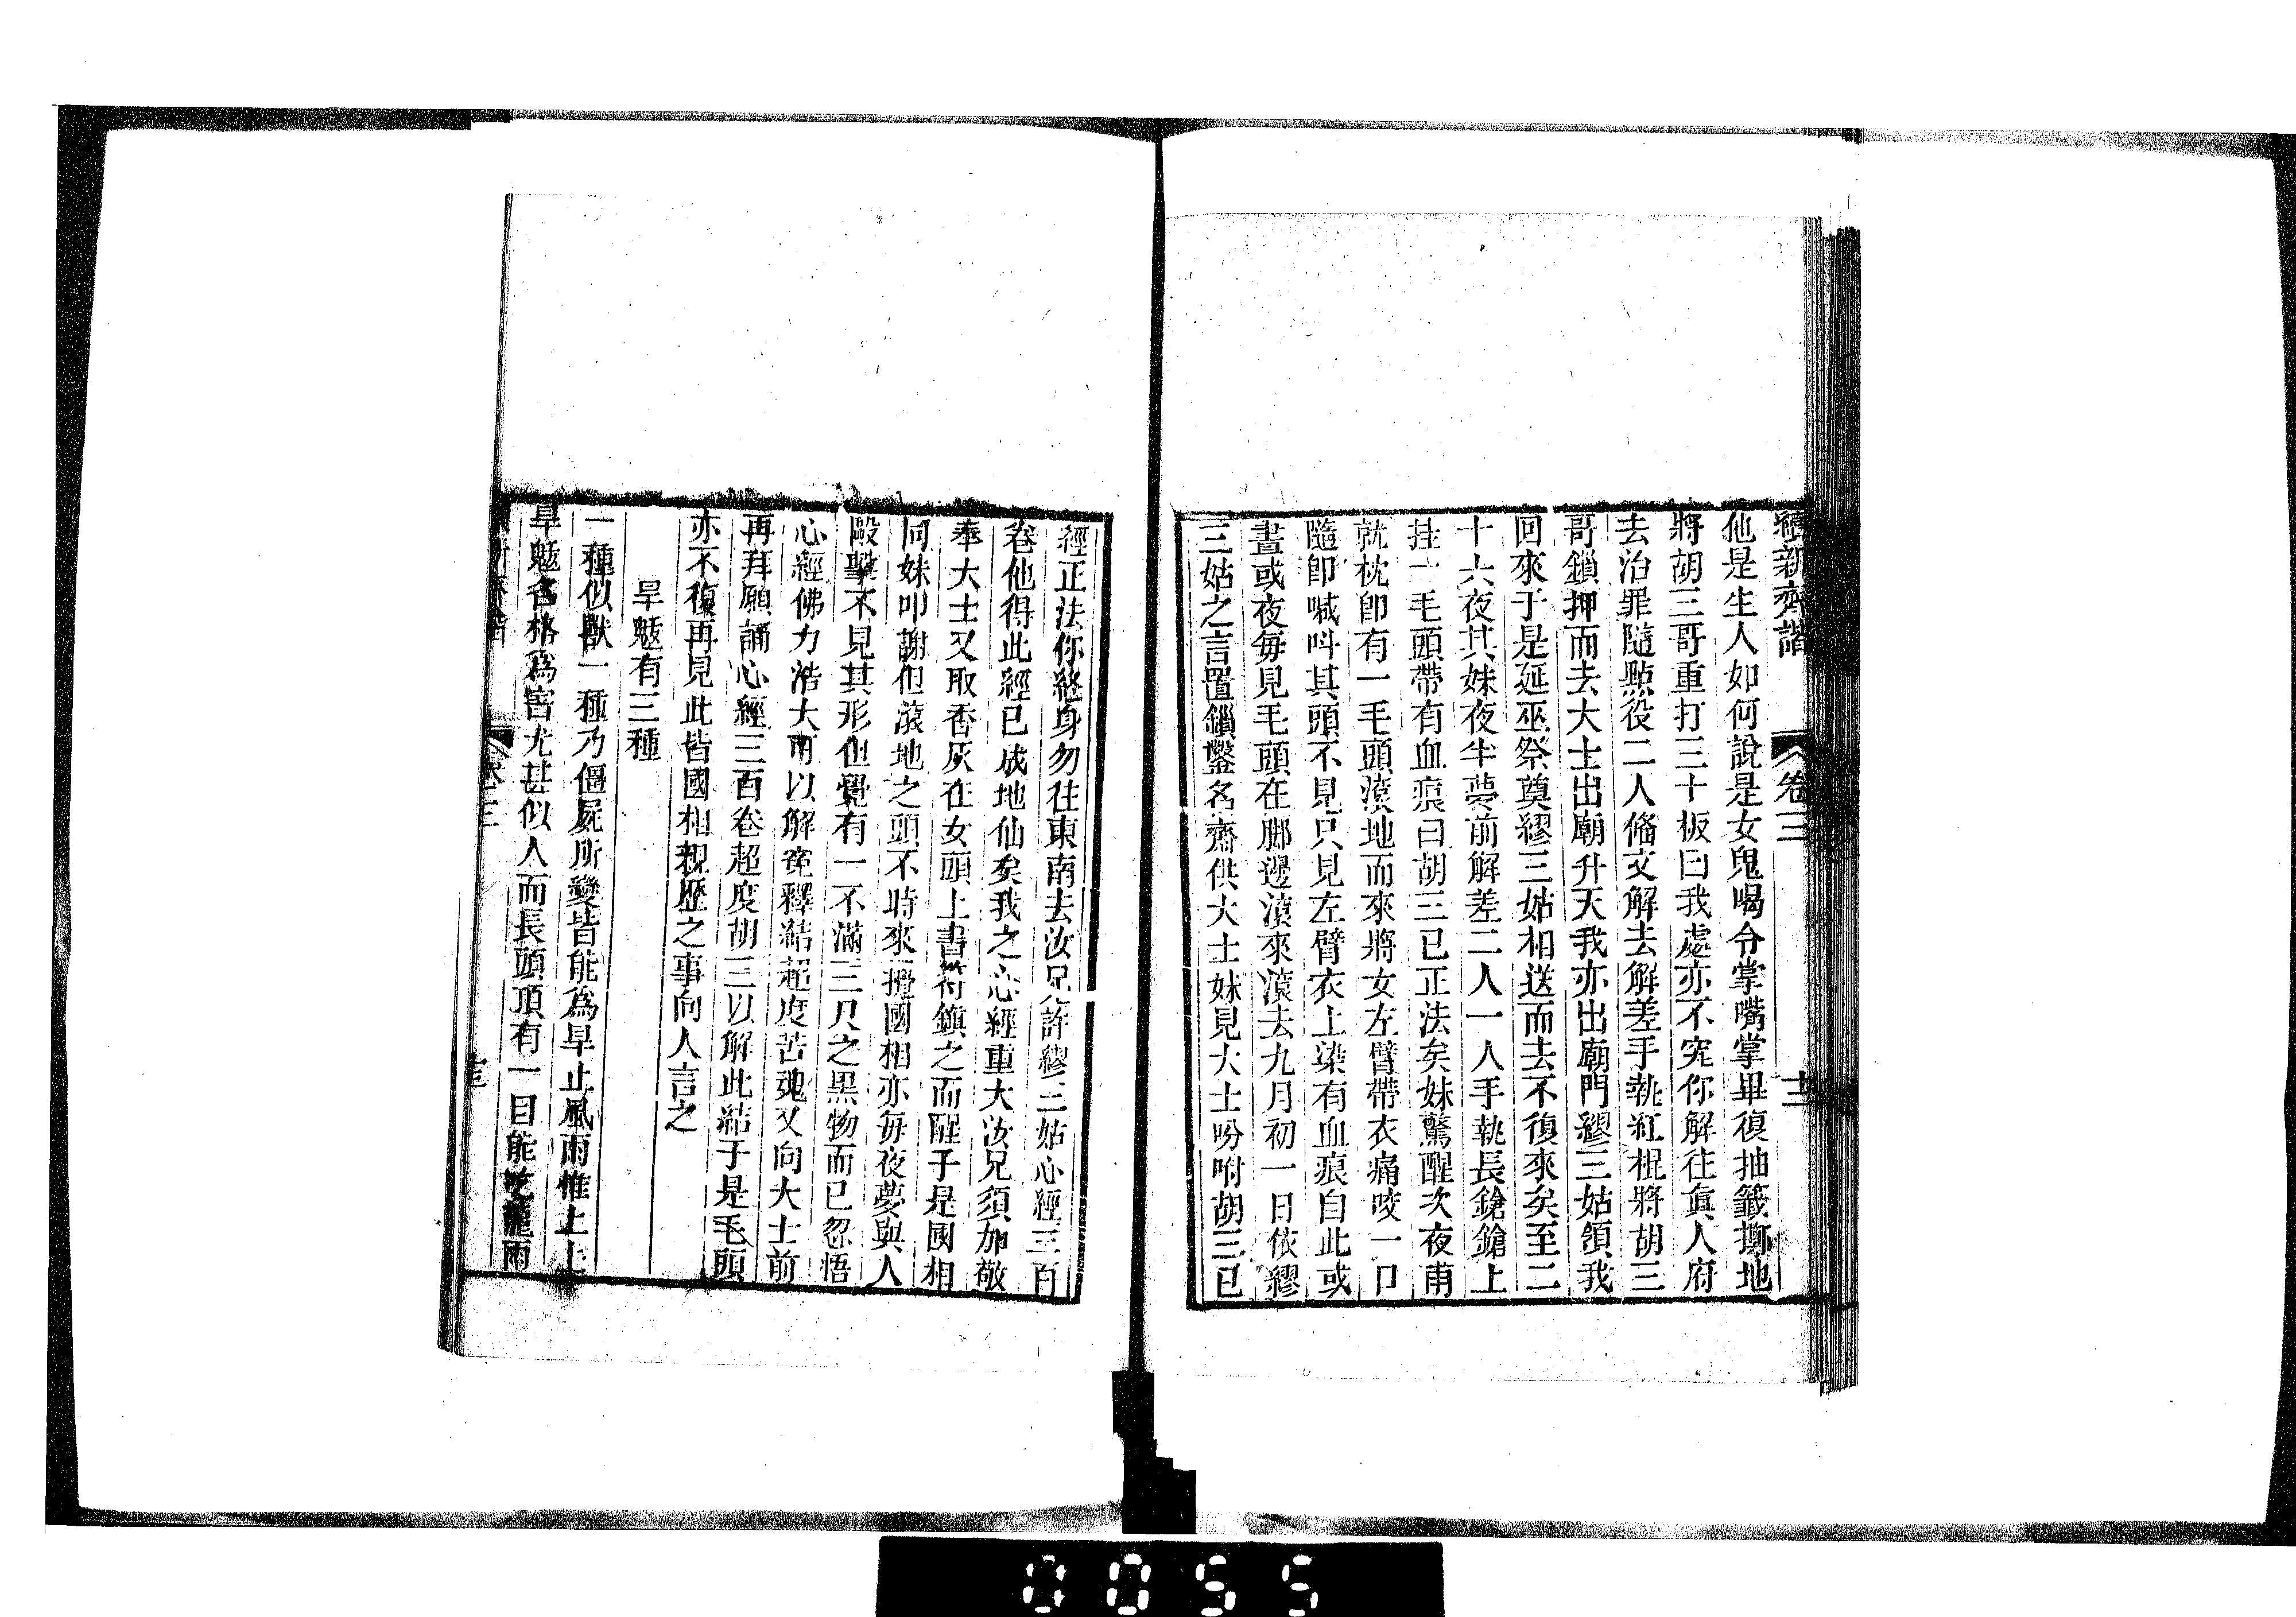 續新齊諧 卷三 十三
他是生人如何說是女鬼喝令掌嘴掌畢復抽籤擲地
將胡三哥重打三十板曰我處亦不究你解往眞人府
去治罪隨點役二人偹文解去解差手執紅棍將胡三
哥鎖押而去大士出廟升天我亦出廟門繆三姑領我
回來于是延巫祭奠繆三姑相送而去不復來矣至二
十六夜其妹夜半夢前解差二人一人手執長鎗鎗上
挂一毛頭帶有血痕曰胡三已正法矣妹驚醒次夜甫
就枕卽有一毛頭滾地而來將女左臂帶衣痛咬一口
隨卽喊呌其頭不見只見左臂衣上染有血痕自此或
晝或夜每見毛頭在脚邊滾來滾去九月初一日依繆
三姑之言置鎻鑿名齋供大士妹見大士吩咐胡三已
經正法你終身勿往東南去汝兄許繆三姑心經三百
卷他得此經已成地仙矣我之心經重大汝兄須加敬
奉大士又取香灰在女頭上書符鎮之而醒于是國相
同妹叩謝但滾地之頭不時來擾國相亦每夜夢與人
毆擊不見其形但覺有一不滿三尺之黑物而已忽悟
心經佛力浩大可以解寃釋結超度苦魂又向大士前
再拜願誦心經三百卷超度胡三以解此結于是毛頭
亦不復再見此皆國相親歷之事向人言之
旱魃有三種
一種似獸一種乃僵屍所變皆能爲旱止風雨惟上上
旱魃名格爲害尤甚似人而長頭頂有一目能吃龍雨